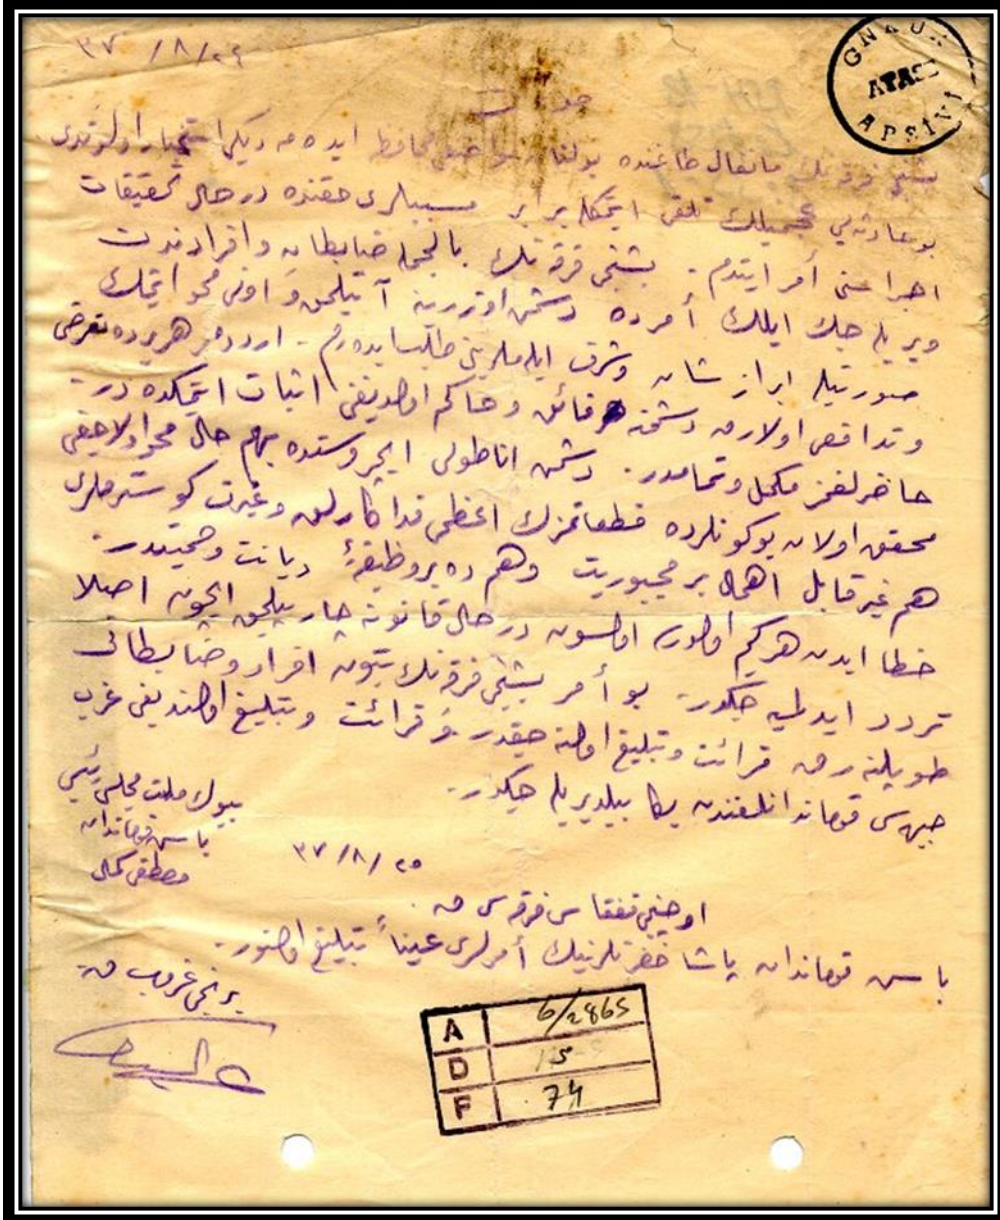 ٣٧ /٨/٢٤
GNKUR
ATASE
ARŞİVİ
بشنجی فرقه‌نك مانغال طاغنده بولنان مواضعی محافظه ایده‌مه‌دیکی استخبار اولوندی
بو حادثه‌یی تلقی ایتمکله برابر سببلری حقنده درحال تحقیقات
اجراسنی أمر ایتدم. بشنجی فرقه‌نك بالجمله ضابطان و افرادندن
ویریله‌جك ایلك أمرده دشمن اوزرینه آتیلمق و اونی محو ایتمك
صورتیله ابراز شان و شرف ایله‌ملرینی طلب ایده‌رم. اردومز هر یرده تعرضی
و تدافعی اولارق دشمنه فائق و حاکم اولدیغنی اثبات ایتمکده‌در.
حاضرلغمز مکمل و تمامدر. دشمن اناطولی ایچروسنده بهمه حال محو اولاجغی
محقق اولان بوکونلرده قطعاتمزك اعظمی فداکارلق و غیرت کوسترملری
هم غیر قابل اهمال بر مجبوریت وهم ده بر وظیفهٔ دیانت و حمیتدر.
خطا ایدن هرکیم اولورسه اولسون درحال قانونه چارپیلمق ایچون اصلا
تردد ایدلمیه‌جکدر. بو أمر بشنجی فرقه‌نك بتون افراد و ضابطانی
طوپلنه‌رق قرائت و تبلیغ اولنه‌جقدر. قرائت و تبلیغ اولندیغی غرب
جبهه‌سی قوماندانلغندن بکا بیلدیریله‌جکدر.
بیوك ملت مجلسی رئیسی
باش قوماندان
مصطفی کمال
٣٧/٨/٢٥
اوچنجی قفقاس فرقه‌سی
باش قوماندان پاشا حضرتلرینك أمرلری عیناً تبلیغ اولنور.
برنجی غروپ
A 6/2865
D 15-
F 74